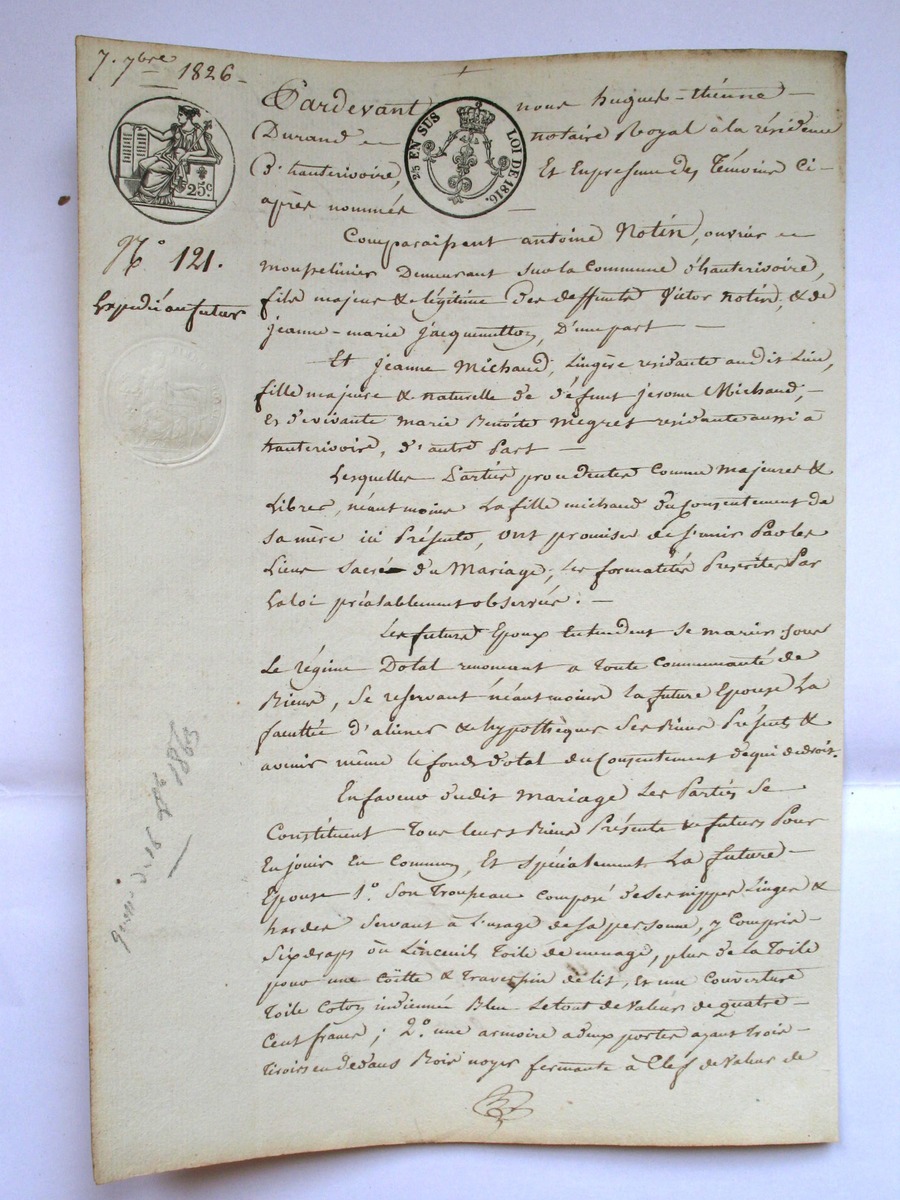 7. 7bre 1826
Pardevant nous hugues-étienne
Durand notaire Royal à la résidence
D'hauterivoire, Et En presence des Témoins Ci-
après nommés
25c.
2/5 EN SUS LOI DE 1816.
No 121.
Expedié au futur
Comparaissent antoine Notin, ouvrier en
mousseliner Demeurant sur la Commune d'hauterivoire,
fils majeur & légitime des deffunts Victor Notin, & de
jeanne-marie Jacquemetton, D'une part
Et Jeanne Michaud, Lingère residante audit Lieu,
fille majeure & naturelle de défunt jerome Michaud,
et de vivante marie Benoite Megret residante aussi à
hauterivoire, d'autre Part
Lesquelles Parties procedentes Comme majeures &
Libres, néantmoins La fille michaud du Consentement de
sa mère ici Présente, ont promises de s'unir Par les
Liens sacré du Mariage, Les formalités Prescrites Par
La loi préalablement observées.
Les futurs Epoux Entendent se marier sous
Le régime Dotal renoncent a Toute Communauté de
Biens, se reservant néantmoins la future Epouse La
faculté d'aliener & hypothèquer ses Biens Présents &
avenir même le fonds dotal du Consentement de qui de droit.
En faveur dudit mariage Les Parties se
Constituent Tous leurs Biens Présents & futurs Pour
En jouir En Commun, Et spécialement La future
Epouse 1o. Son Troupeau composé de ses nippes Linges &
hardes servant à L'usage de sa personne, y Compris
six draps ou Linceuil Toile de menage, plus de la Toile
pour une Coëtte & Traverpin de lit, et une Couverture
Toile Coton indienne Bleu Le tout de Valeur de quatre
Cent francs; 2o. une armoire a deux portes ayant Trois
Tiroirs en dedans Bois noyer fermante à Clef de Valeur de
18
1863